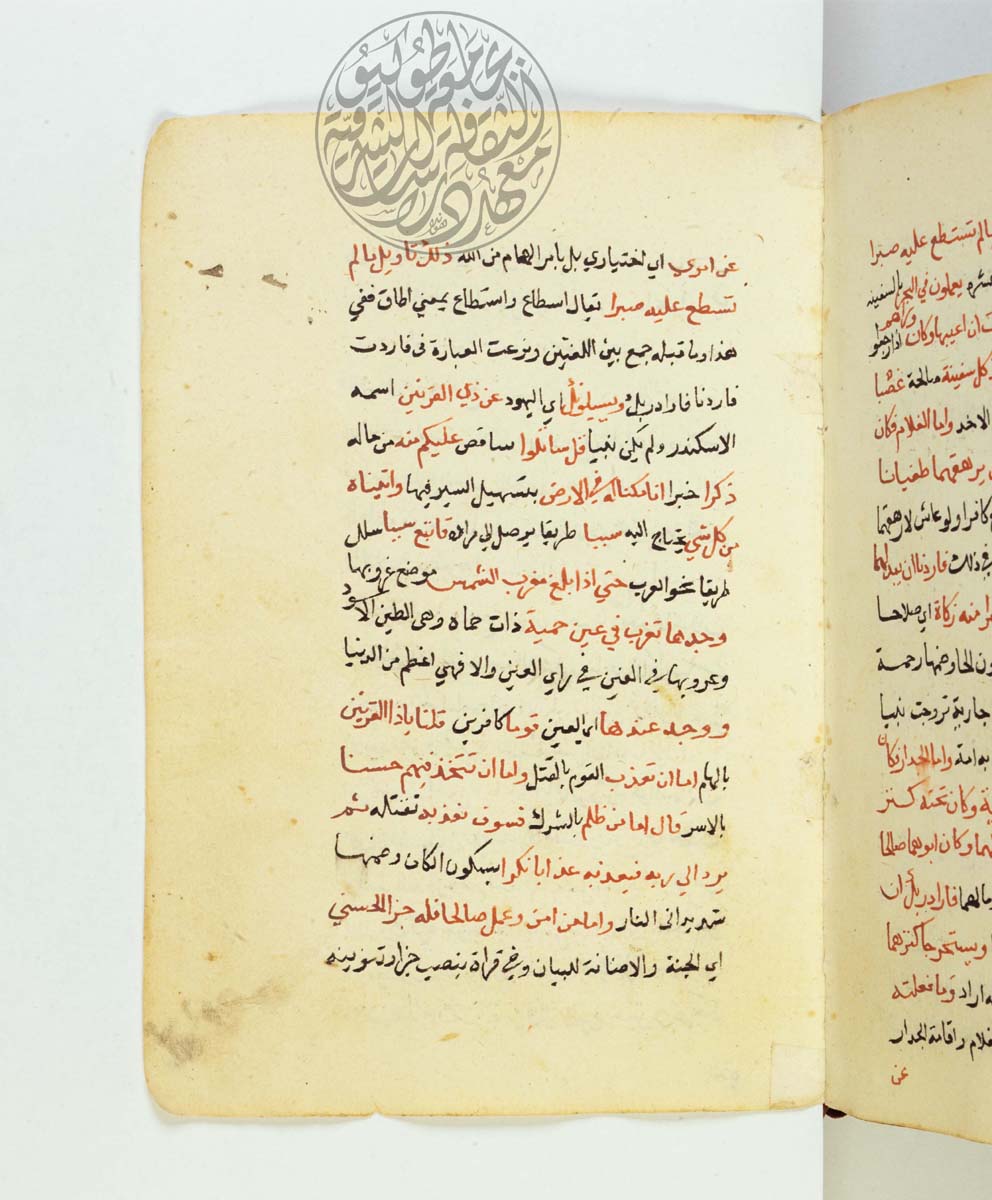 عن امري اي اختياري بل بامر الهام من الله ذلك تاويل مالم
تسطع عليه صبرا يقال اسطاع واستطاع بمعني اطاق ففي
هذا وما قبله جمع بين اللغتين ونوعت العبارة في فاردت
فاردنا فاراد ربك ويسيلونك اي اليهود عن ذي القرنين اسمه
الاسكندر ولم يكن نبيا قل ساتلوا ساقص عليكم منه من حاله
ذكرا خبرا انا مكنا له في الارض بتسهيل السير فيها واتيناه
من كل شي يحتاج اليه سببا طريقا يوصل الي مراده فاتبع سببا سلك
طريقا نحو الغرب حتي اذا بلغ مغرب الشمس موضع غروبها
وجدها تغرب في عين حمية ذات حماة وهي الطين الاسود
وغروبها في العين في راي العين والا فهي اعظم من الدنيا
ووجد عندها اي العين قوما كافرين قلنا ياذا القرنين
بالهام اما ان تعذب القوم بالقتل واما ان تتخذ فيهم حسنا
بالاسر قال اما من ظلم بالشرك فسوف نعذبه نقتله ثم
يرد الي ربه فيعذبه عذابا نكرا بسكون الكاف وضمها
شديدا في النار واما من امن وعمل صالحا فله جزا الحسني
اي الجنة والاضافة للبيان وفي قراة بنصب جزا وتنوينه
مالم تستطع عليه صبرا
عشرة يعملون في البحر بالسفينة
ت ان اعيبها وكان وراهم
اذا رجعوا
كل سفينة صالحة غصبا
الاخذ واما الغلام فكان
يرهقهما طغيانا
كافرا ولو عاش لارهقهما
في ذلك فاردنا ان يبدلهما
را منه زكاة اي صلاحا
ون الحا وضمها رحمة
جارية تزوجت نبيا
به امة واما الجدار فكان
نة وكان تحته كنز
لهما وكان ابوهما صالحا
مالهما فاراد ربك ان
ويستخرجا كنزهما
ه اراد وما فعلته
غلام واقامة الجدار
عن
معهد دراسات الثقافة الشرقية جامعة طوكيو